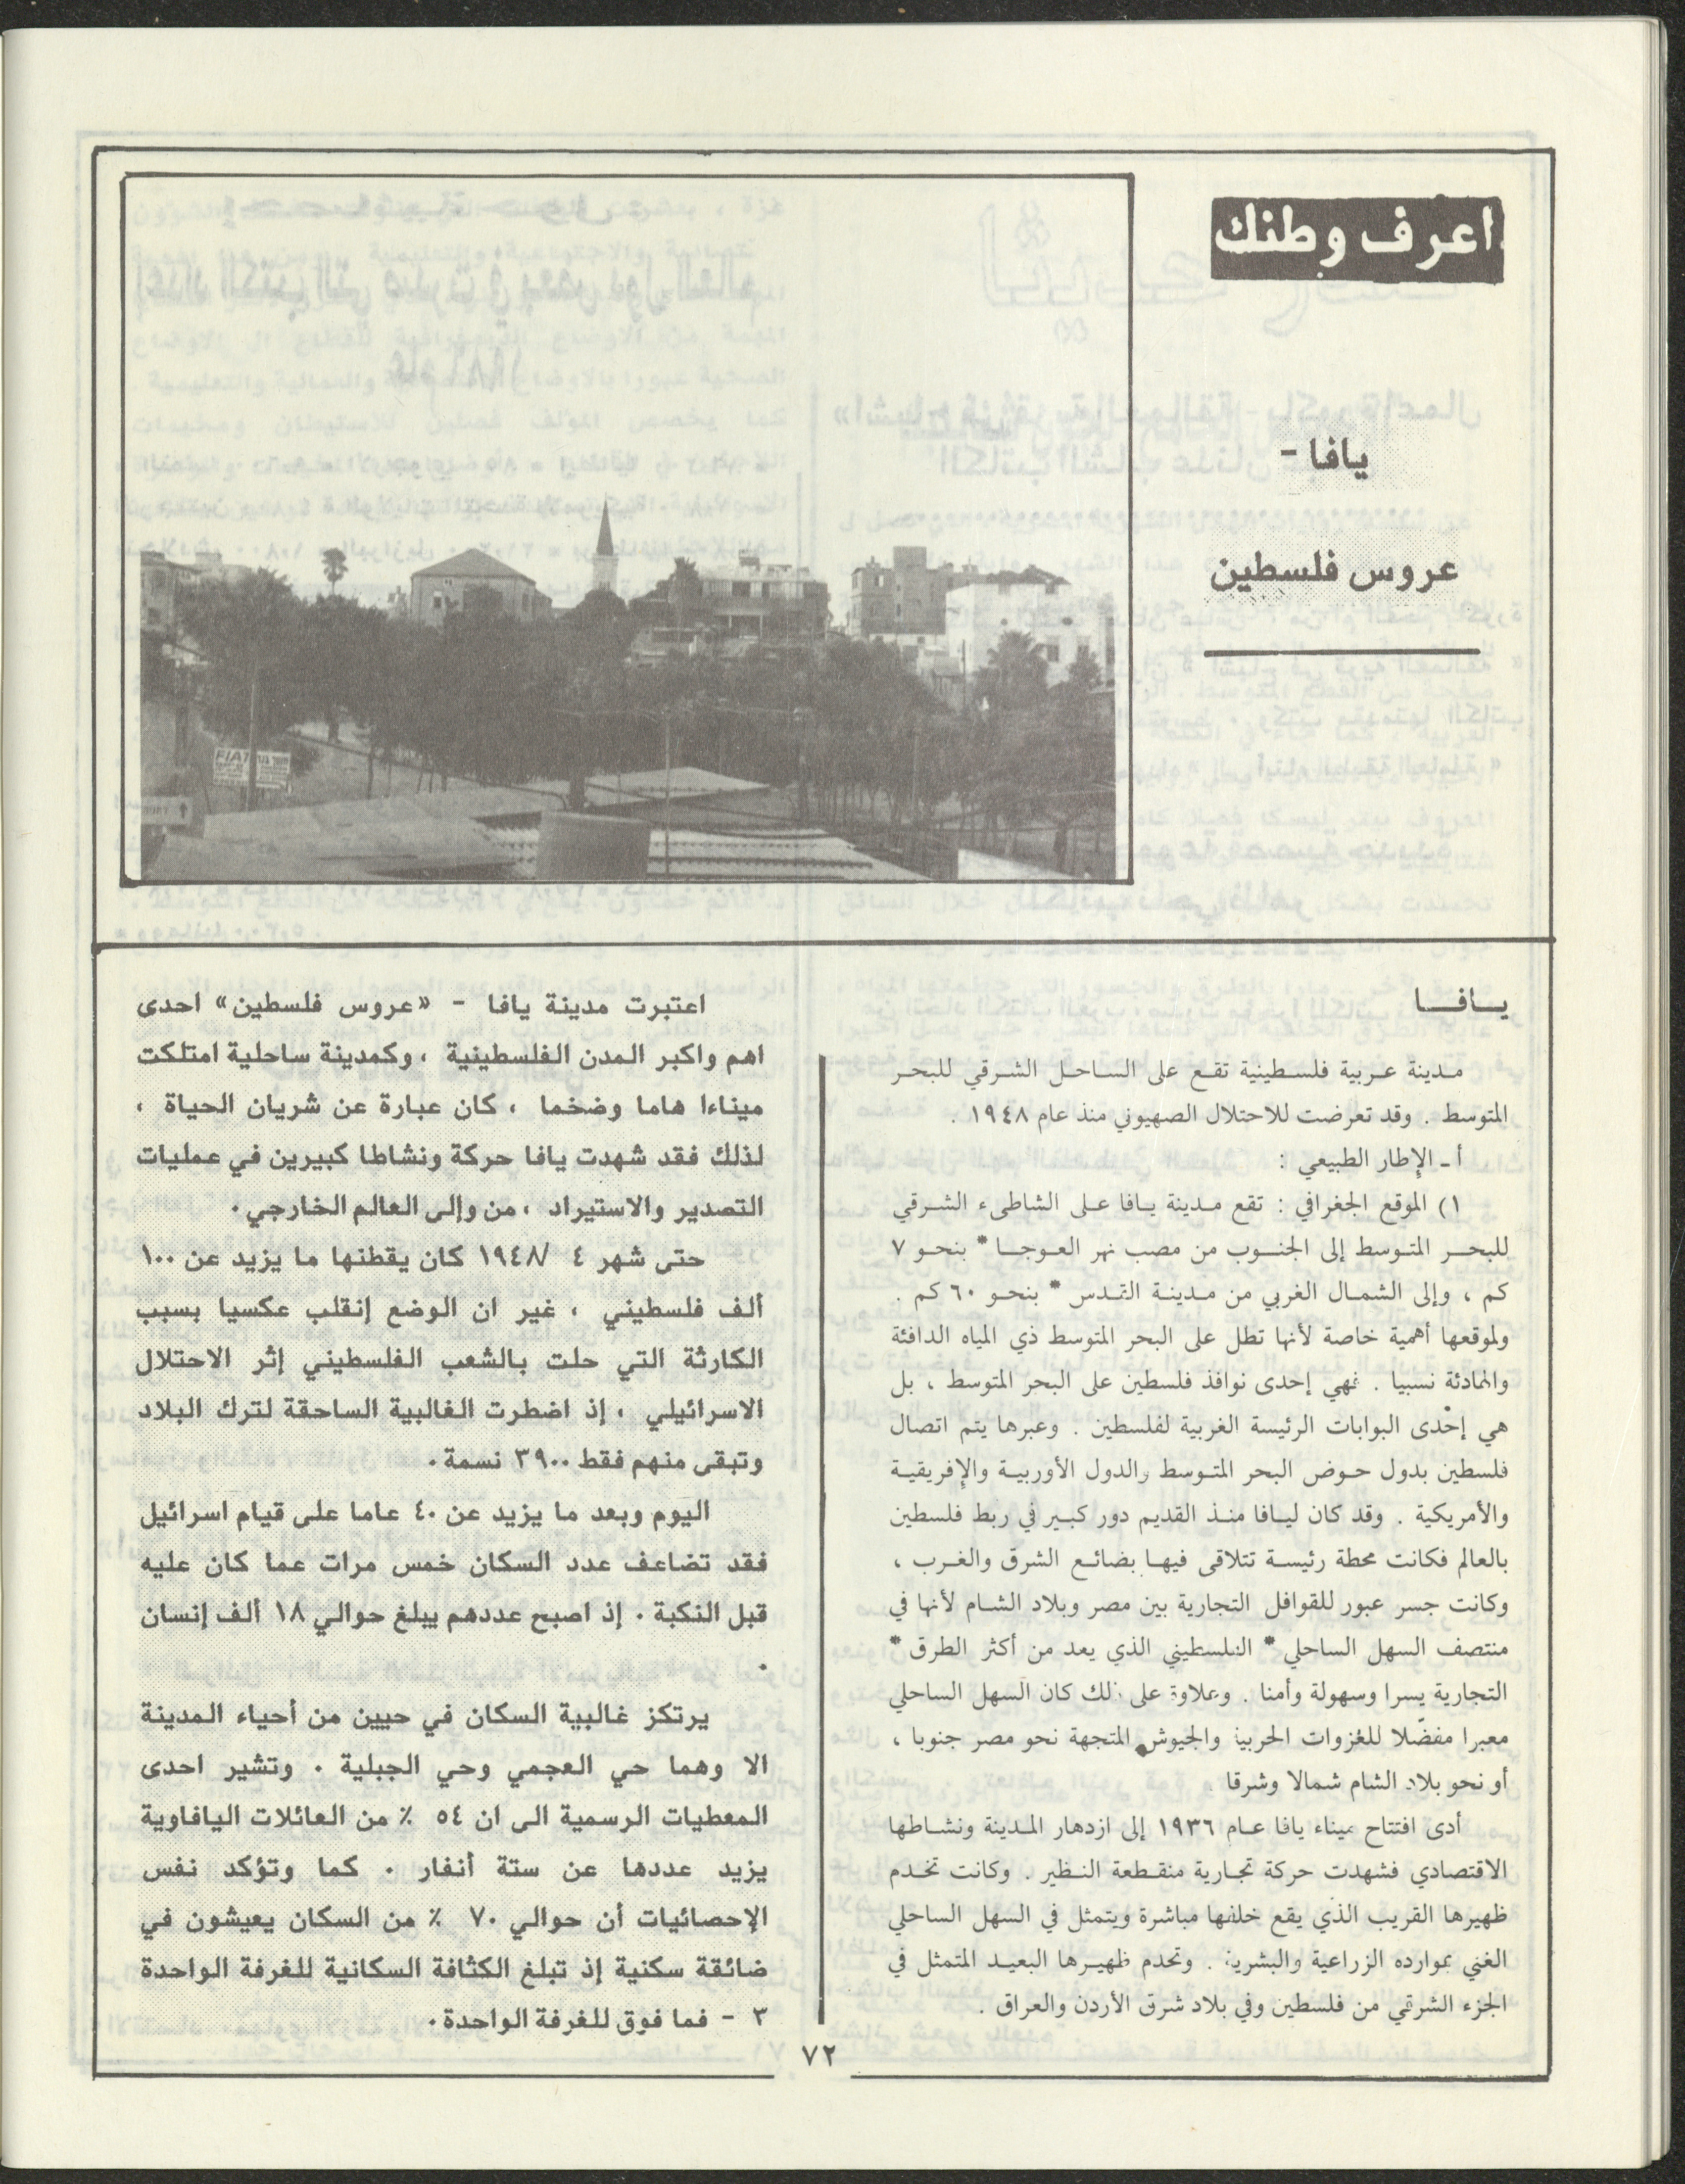 اعرف وطنك
يافا -
عروس فلسطين
FIAT
يــافــا
مـدينة عـربية فلسـطينية تقـع على السـاحـل الشـرقي للبحـر
المتوسط . وقد تعرضت للاحتلال الصهيوني منذ عام ١٩٤٨ .
أ ـ الإطار الطبيعي :
١) الموقع الجغرافي : تقع مـدينة يـافا عـلى الشاطىء الشـرقي
للبحـر المتـوسط إلى الجنـوب من مصب نهر العـوجـا * بنحـو ٧
كم ، وإلى الشمـال الغربي من مـدينـة القـدس * بنحـو ٦٠ كم .
ولموقعها أهمية خاصة لأنها تطل على البحر المتوسط ذي المياه الدافئة
والهادئة نسبيا . فهي إحدى نوافذ فلسطين على البحر المتوسط ، بل
هي إحدى البوابات الرئيسة الغربية لفلسطين . وعبرها يتم اتصال
فلسطين بدول حـوض البحر المتـوسط والدول الأوربيـة والإفريقيـة
والأمريكية . وقد كان ليـافا منـذ القديم دور كبـير في ربط فلسطين
بالعالم فكانت محطة رئيسـة تتلاقى فيهـا بضائـع الشرق والغـرب ،
وكانت جسر عبور للقوافل التجارية بين مصر وبلاد الشـام لأنها في
منتصف السهل الساحلي * الفلسطيني الذي يعد من أكثر الطرق *
التجارية يسرا وسهولة وأمنا . وعلاوة على ذلك كان السهل الساحلي
معبرا مفضّلا للغزوات الحربية والجيوش المتجهة نحو مصر جنوبا ،
أو نحو بلاد الشام شمالا وشرقا .
أدى افتتاح ميناء يافا عـام ١٩٣٦ إلى ازدهار المـدينة ونشـاطها
الاقتصادي فشهدت حركة تجـارية منقـطعة النـظير . وكانت تخـدم
ظهيرها القريب الذي يقع خلفها مباشرة ويتمثل في السهل الساحلي
الغني بموارده الزراعية والبشرية . وتخدم ظهيـرها البعيـد المتمثل في
الجزء الشرقي من فلسطين وفي بلاد شرق الأردن والعراق .
اعتبرت مدينة يافا - «عروس فلسطين» احدى
اهم واكبر المدن الفلسطينية ، وكمدينة ساحلية امتلكت
ميناءا هاما وضخما ، كان عبارة عن شريان الحياة ،
لذلك فقد شهدت يافا حركة ونشاطا كبيرين في عمليات
التصدير والاستيراد ، من وإلى العالم الخارجي .
حتى شهر ٤ /١٩٤٨ كان يقطنها ما يزيد عن ١٠٠
ألف فلسطيني ، غير ان الوضع إنقلب عكسيا بسبب
الكارثة التي حلت بالشعب الفلسطيني إثر الاحتلال
الاسرائيلي ، إذ اضطرت الغالبية الساحقة لترك البلاد
وتبقى منهم فقط ٣٩٠٠ نسمة .
اليوم وبعد ما يزيد عن ٤٠ عاما على قيام اسرائيل
فقد تضاعف عدد السكان خمس مرات عما كان عليه
قبل النكبة . إذ اصبح عددهم يبلغ حوالي ١٨ ألف إنسان
.
يرتكز غالبية السكان في حيين من أحياء المدينة
الا وهما حي العجمي وحي الجبلية . وتشير احدى
المعطيات الرسمية الى ان ٥٤ ٪ من العائلات اليافاوية
يزيد عددها عن ستة أنفار . كما وتؤكد نفس
الإحصائيات أن حوالي ٧٠ ٪ من السكان يعيشون في
ضائقة سكنية إذ تبلغ الكثافة السكانية للغرفة الواحدة
٣ - فما فوق للغرفة الواحدة .
٧٢